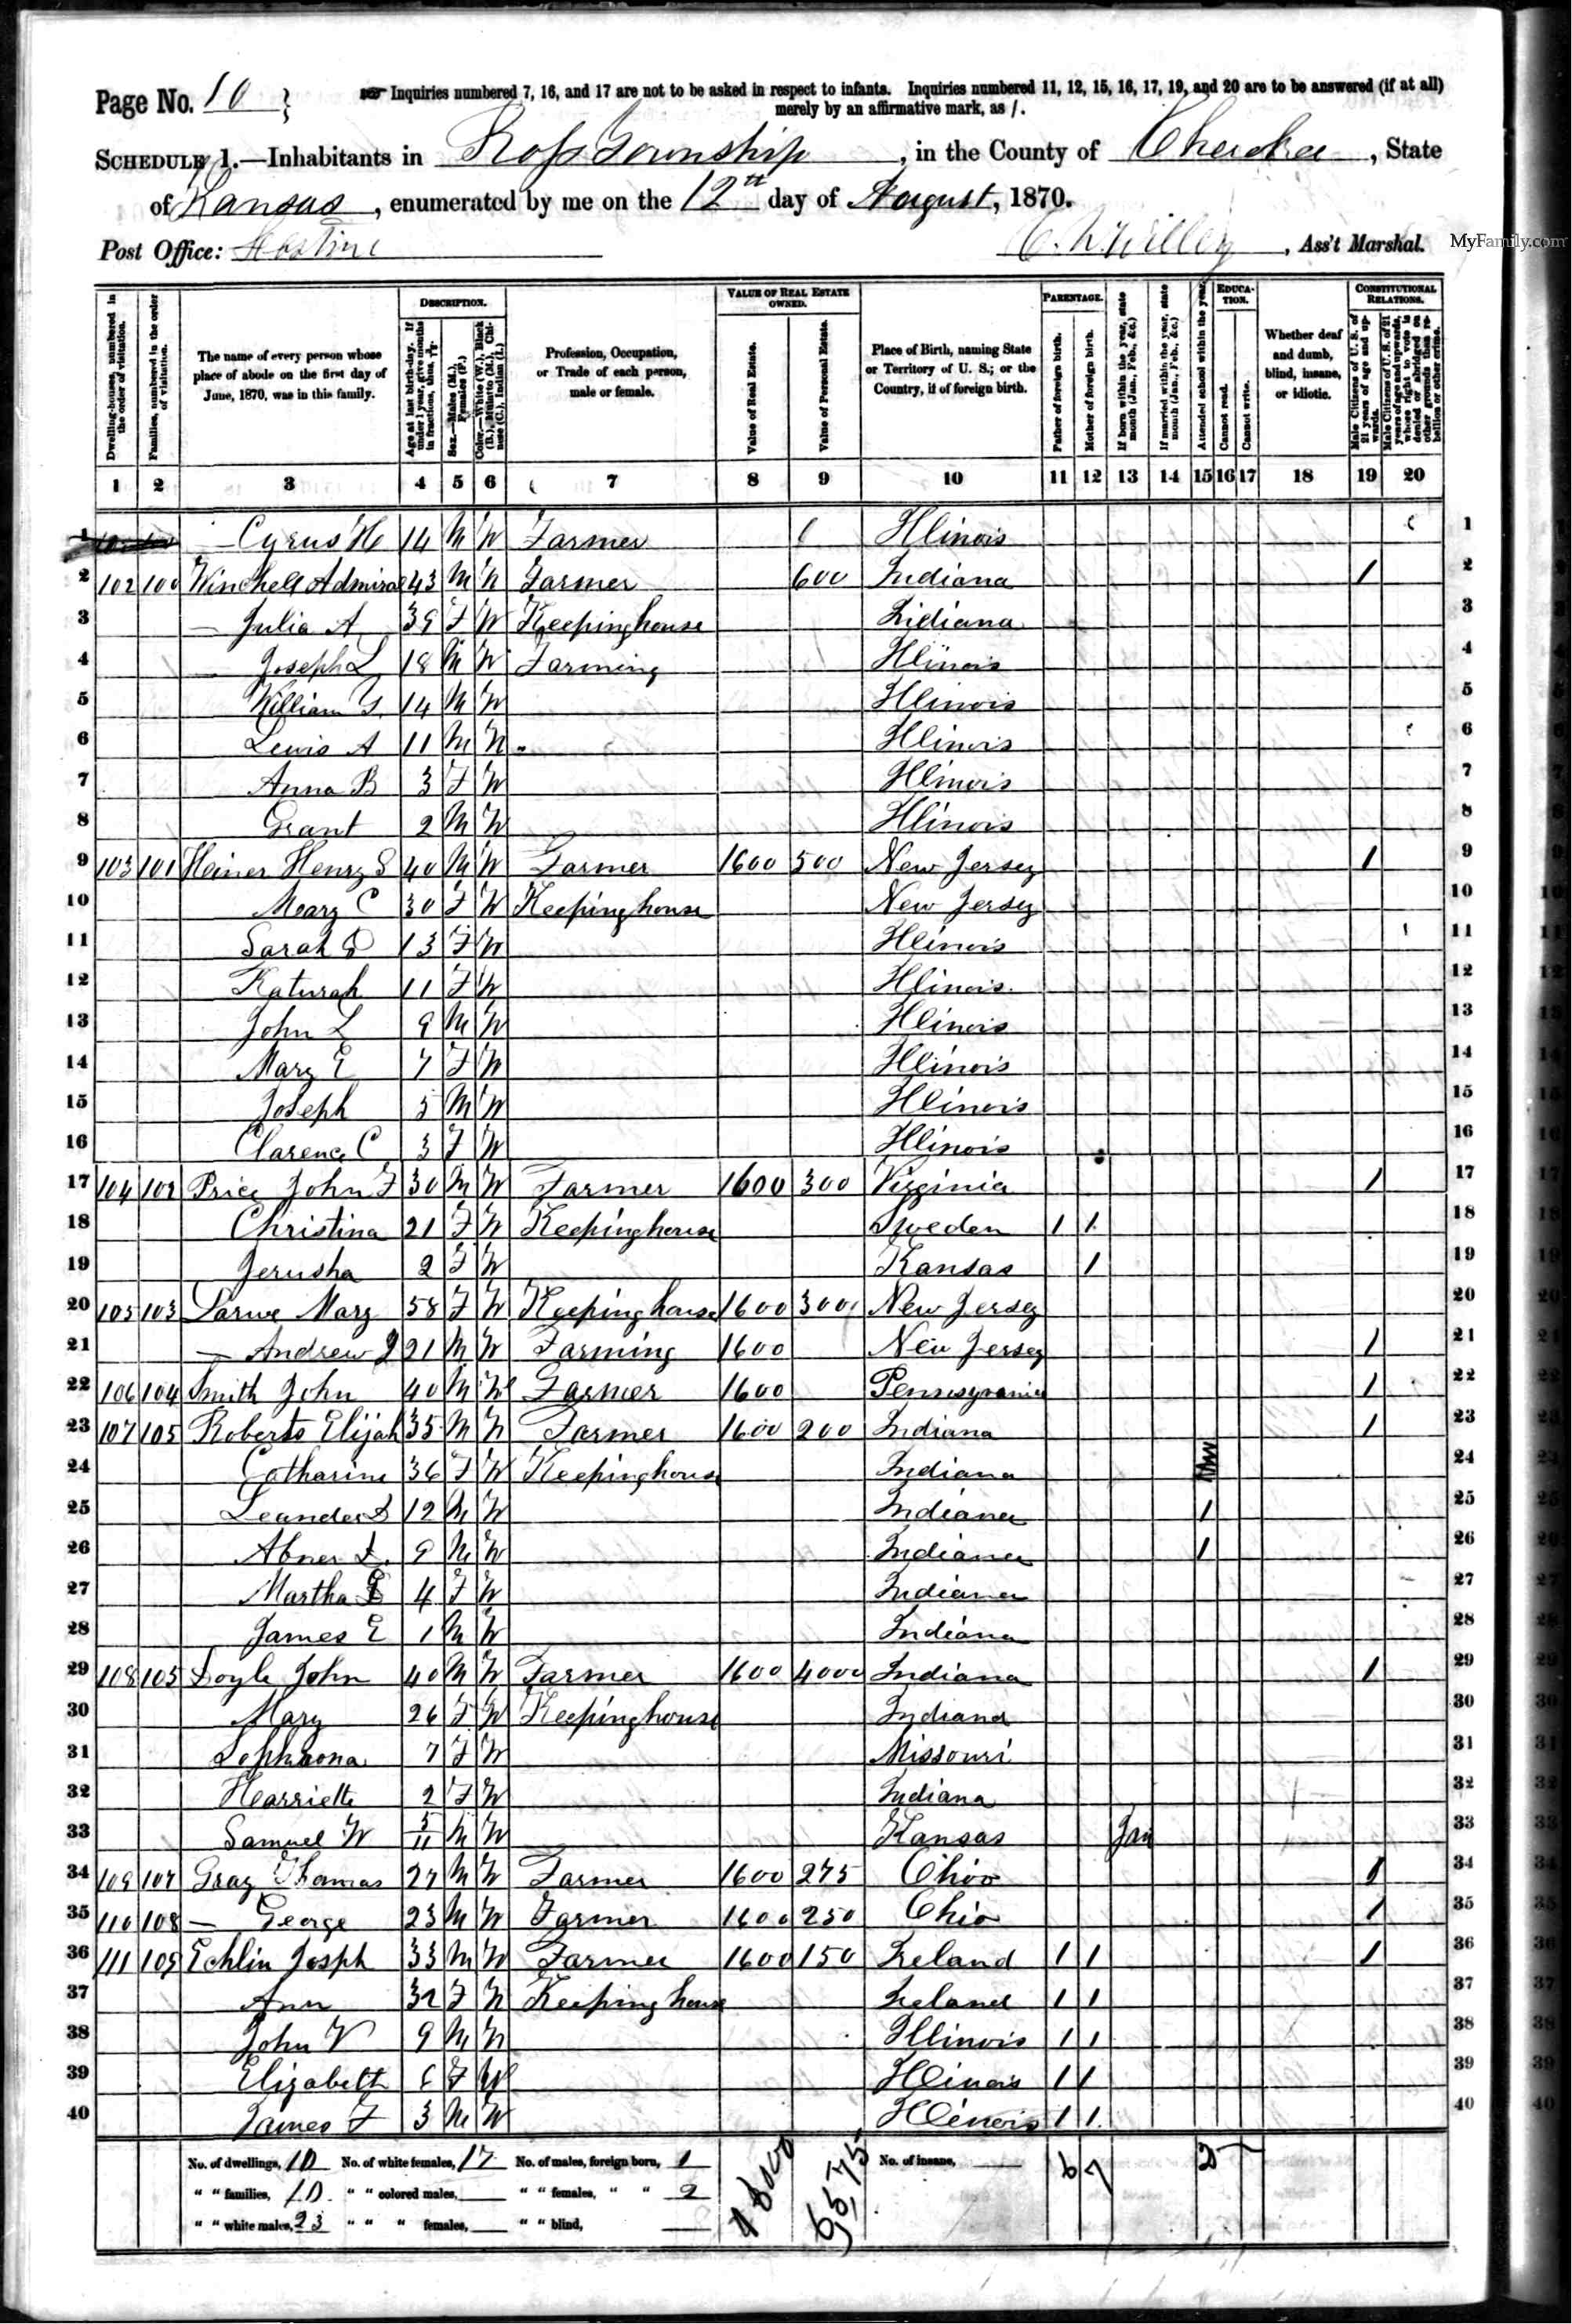 Page No. 10 } Inquiries numbered 7, 16, and 17 are not to be asked in respect to infants. Inquiries numbered 11, 12, 15, 16, 17, 19, and 20 are to be answered (if at all)
merely by an affirmative mark, as /.
SCHEDULE 1.—Inhabitants in Ross Township, in the County of Cherokee, State
of Kansas, enumerated by me on the 12th day of August, 1870.
Post Office: , Ass't Marshal.
MyFamily.com
Dwelling-houses, numbered in the order of visitation.
Families, numbered in the order of visitation.
The name of every person whose place of abode on the first day of June, 1870, was in this family.
DESCRIPTION.
Age at last birth-day. If under 1 year, give months in fractions, thus, 3/12.
Sex.—Males (M.), Females (F.)
Color.—White (W.), Black (B.), Mulatto (M.), Chinese (C.), Indian (I.)
Profession, Occupation, or Trade of each person, male or female.
VALUE OF REAL ESTATE OWNED.
Value of Real Estate.
Value of Personal Estate.
Place of Birth, naming State or Territory of U. S.; or the Country, if of foreign birth.
PARENTAGE.
Father of foreign birth.
Mother of foreign birth.
If born within the year, state month (Jan., Feb., &c.)
If married within the year, state month (Jan., Feb., &c.)
Attended school within the year.
EDUCATION.
Cannot read.
Cannot write.
Whether deaf and dumb, blind, insane, or idiotic.
CONSTITUTIONAL RELATIONS.
Male Citizens of U. S. of 21 years of age and upwards.
Male Citizens of U. S. of 21 years of age and upwards, whose right to vote is denied or abridged on other grounds than rebellion or other crime.
1 2 3 4 5 6 7 8 9 10 11 12 13 14 15 16 17 18 19 20
1 — Cyrus H 14 M W Farmer Illinois 1
2 102 100 Winchell Admiral 43 M W Farmer 600 Indiana 1 2
3 — Julia A 39 F W Keeping house Indiana 3
4 — Joseph L 18 M W Farming Illinois 4
5 William 14 M W Illinois 5
6 Lewis A 11 M W Illinois 6
7 Anna B 3 F W Illinois 7
8 Grant 2 M W Illinois 8
9 103 101 Heiner Henry S 40 M W Farmer 1600 500 New Jersey 1 9
10 Mary C 30 F W Keeping house New Jersey 10
11 Sarah 13 F W Illinois 11
12 Katurah 11 F W Illinois 12
13 John L 9 M W Illinois 13
14 Mary E 7 F W Illinois 14
15 Joseph 5 M W Illinois 15
16 Clarence C 3 F W Illinois 16
17 104 102 Price John F 30 M W Farmer 1600 300 Virginia 1 17
18 Christina 21 F W Keeping house Sweden 1 1 18
19 Jerusha 2 F W Kansas 1 19
20 105 103 Larue Mary 58 F W Keeping house 1600 300 New Jersey 20
21 — Andrew J 21 M W Farming 1600 New Jersey 1 21
22 106 104 Smith John 40 M W Farmer 1600 Pennsylvania 1 22
23 107 105 Roberts Elijah 35 M W Farmer 1600 200 Indiana 1 23
24 Catharine 36 F W Keeping house Indiana 24
25 Leander 12 M W Indiana 1 25
26 Abner L. 9 M W Indiana 1 26
27 Martha E 4 F W Indiana 27
28 James E 1 M W Indiana 28
29 108 105 Doyle John 40 M W Farmer 1600 4000 Indiana 1 29
30 Mary 26 F W Keeping house Indiana 30
31 7 F W Missouri 31
32 Harriette 2 F W Indiana 32
33 Samuel W 5/11 M W Kansas Jan 33
34 109 107 Gray Thomas 27 M W Farmer 1600 275 Ohio 1 34
35 110 108 — George 23 M W Farmer 1600 250 Ohio 1 35
36 111 109 Echlin Josph 33 M W Farmer 1600 150 Ireland 1 1 1 36
37 Ann 32 F W Keeping house Ireland 1 1 37
38 John V 9 M W Illinois 1 1 38
39 Elizabeth 6 F W Illinois 1 1 39
40 James F 3 M W Illinois 1 1 40
No. of dwellings, 10 No. of white females, 17 No. of males, foreign born, 1 No. of insane, 6 7 2
" " families, 10 " " colored males, " " females, " " 2
" " white males, 23 " " " females, " " blind,